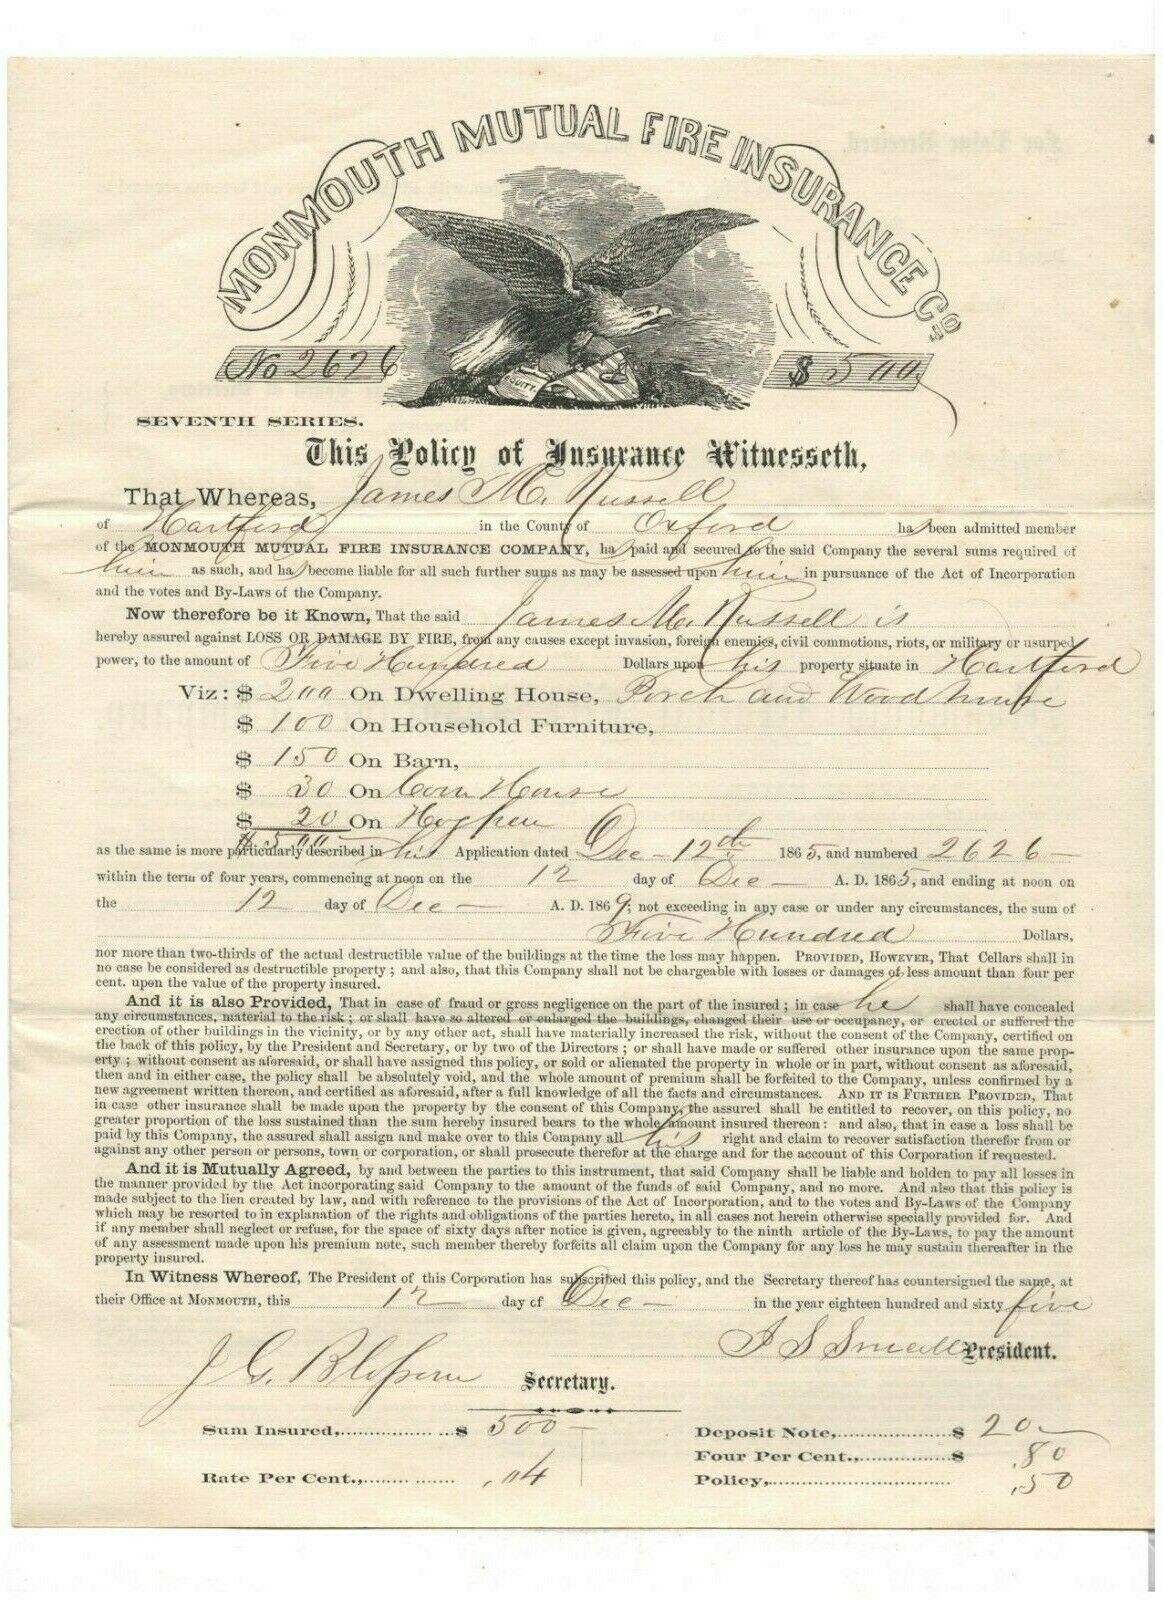 MONMOUTH MUTUAL FIRE INSURANCE Co
No 2626
$ 500
EQUITY.
SEVENTH SERIES.
This Policy of Insurance Witnesseth,
That Whereas, James M. Russell
of Hartford in the County of Oxford has been admitted member
of the MONMOUTH MUTUAL FIRE INSURANCE COMPANY, has paid and secured to the said Company the several sums required of
him as such, and has become liable for all such further sums as may be assessed upon him in pursuance of the Act of Incorporation
and the votes and By-Laws of the Company.
Now therefore be it Known, That the said James M. Russell is
hereby assured against LOSS OR DAMAGE BY FIRE, from any causes except invasion, foreign enemies, civil commotions, riots, or military or usurped
power, to the amount of Five Hundred Dollars upon his property situate in Hartford
Viz: $ 200 On Dwelling House, Porch and Wood house
$ 100 On Household Furniture,
$ 150 On Barn,
$ 30 On Corn House
$ 20 On Hogpen
$ 500
as the same is more particularly described in his Application dated Dec - 12th 1865, and numbered 2626 -
within the term of four years, commencing at noon on the 12 day of Dec - A. D. 1865, and ending at noon on
the 12 day of Dec - A. D. 1869; not exceeding in any case or under any circumstances, the sum of
Five Hundred Dollars,
nor more than two-thirds of the actual destructible value of the buildings at the time the loss may happen. PROVIDED, HOWEVER, That Cellars shall in
no case be considered as destructible property; and also, that this Company shall not be chargeable with losses or damages of less amount than four per
cent. upon the value of the property insured.
And it is also Provided, That in case of fraud or gross negligence on the part of the insured; in case he shall have concealed
any circumstances, material to the risk; or shall have so altered or enlarged the buildings, changed their use or occupancy, or erected or suffered the
erection of other buildings in the vicinity, or by any other act, shall have materially increased the risk, without the consent of the Company, certified on
the back of this policy, by the President and Secretary, or by two of the Directors; or shall have made or suffered other insurance upon the same prop-
erty; without consent as aforesaid, or shall have assigned this policy, or sold or alienated the property in whole or in part, without consent as aforesaid,
then and in either case, the policy shall be absolutely void, and the whole amount of premium shall be forfeited to the Company, unless confirmed by a
new agreement written thereon, and certified as aforesaid, after a full knowledge of all the facts and circumstances. AND IT IS FURTHER PROVIDED, That
in case other insurance shall be made upon the property by the consent of this Company, the assured shall be entitled to recover, on this policy, no
greater proportion of the loss sustained than the sum hereby insured bears to the whole amount insured thereon: and also, that in case a loss shall be
paid by this Company, the assured shall assign and make over to this Company all his right and claim to recover satisfaction therefor from or
against any other person or persons, town or corporation, or shall prosecute therefor at the charge and for the account of this Corporation if requested.
And it is Mutually Agreed, by and between the parties to this instrument, that said Company shall be liable and holden to pay all losses in
the manner provided by the Act incorporating said Company to the amount of the funds of said Company, and no more. And also that this policy is
made subject to the lien created by law, and with reference to the provisions of the Act of Incorporation, and to the votes and By-Laws of the Company
which may be resorted to in explanation of the rights and obligations of the parties hereto, in all cases not herein otherwise specially provided for. And
if any member shall neglect or refuse, for the space of sixty days after notice is given, agreeably to the ninth article of the By-Laws, to pay the amount
of any assessment made upon his premium note, such member thereby forfeits all claim upon the Company for any loss he may sustain thereafter in the
property insured.
In Witness Whereof, The President of this Corporation has subscribed this policy, and the Secretary thereof has countersigned the same, at
their Office at MONMOUTH, this 12 day of Dec - in the year eighteen hundred and sixty five
Small President.
J G. Secretary.
Sum Insured, $ 500 -
Rate Per Cent., .04
Deposit Note, $ 20 -
Four Per Cent., $ .80
Policy, .50